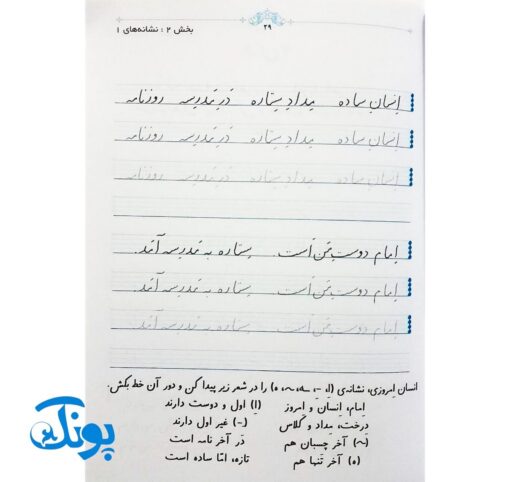 بخش ۲ : نشانه‌های ۱
۲۹
اِنسان ساده مِدادِ سِتاره دَر مَدرسه روزنامه
اِنسان ساده مِدادِ سِتاره دَر مَدرسه روزنامه
اِنسان ساده مِدادِ سِتاره دَر مَدرسه روزنامه
اِمام دوستِ مَن اَست. سِتاره به مَدرسه آمَد.
اِمام دوستِ مَن اَست. سِتاره به مَدرسه آمَد.
اِمام دوستِ مَن اَست. سِتاره به مَدرسه آمَد.
انسان اِمروزی، نشانه‌ی (اِ، ـِ، ـه، ه) را در شعر زیر پیدا کن و دور آن خط بکش.
اِمام، اِنسان و اِمروز (اِ) اول و دوست دارند
دِرخت، مِداد و کِلاس (ـِ) غیر اول دارند
(ـه) آخر چسبان هم دَر آخر نامه است
(ه) آخر تنها هم تازه، امّا ساده است
پونک